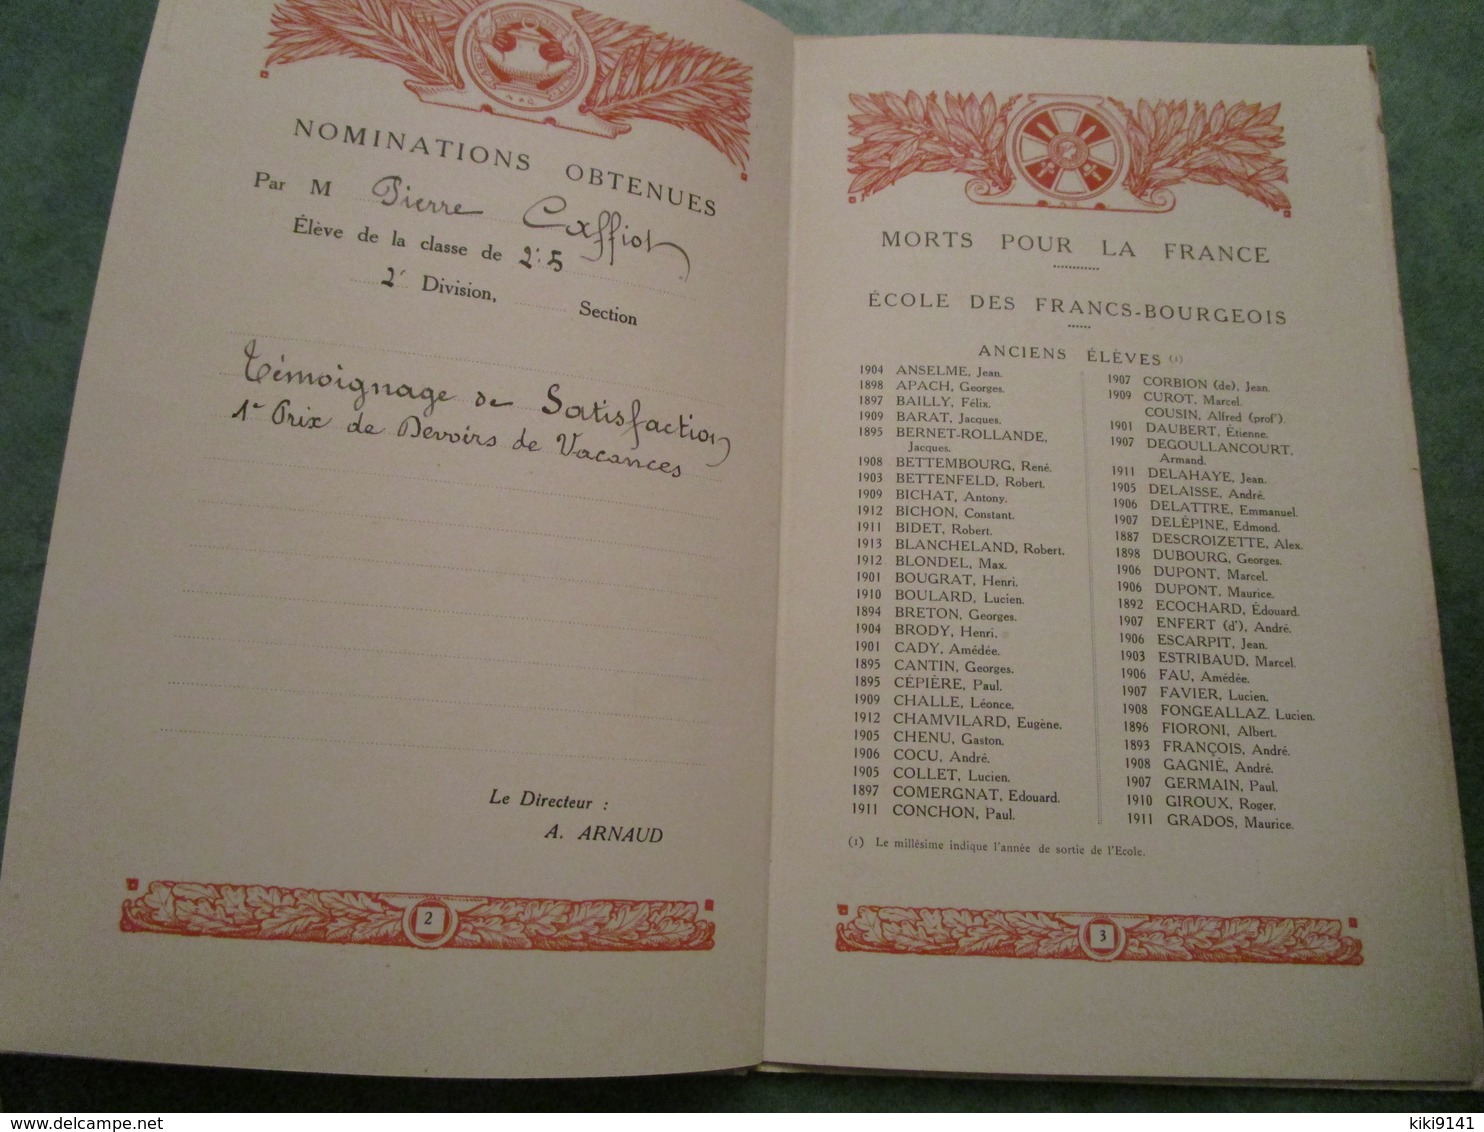 NOMINATIONS OBTENUES
Par M Pierre Caffiot
Élève de la classe de 2e 5
2e Division, Section
Témoignage de Satisfaction
1er Prix de Devoirs de Vacances
Le Directeur :
A. ARNAUD
2
MORTS POUR LA FRANCE
ÉCOLE DES FRANCS-BOURGEOIS
ANCIENS ÉLÈVES (1)
1904 ANSELME, Jean.
1898 APACH, Georges.
1897 BAILLY, Félix.
1909 BARAT, Jacques.
1895 BERNET-ROLLANDE,
Jacques.
1908 BETTEMBOURG, René.
1903 BETTENFELD, Robert.
1909 BICHAT, Antony.
1912 BICHON, Constant.
1911 BIDET, Robert.
1913 BLANCHELAND, Robert.
1912 BLONDEL, Max.
1901 BOUGRAT, Henri.
1910 BOULARD, Lucien.
1894 BRETON, Georges.
1904 BRODY, Henri.
1901 CADY, Amédée.
1895 CANTIN, Georges.
1895 CÉPIÈRE, Paul.
1909 CHALLE, Léonce.
1912 CHAMVILARD, Eugène.
1905 CHENU, Gaston.
1906 COCU, André.
1905 COLLET, Lucien.
1897 COMERGNAT, Edouard.
1911 CONCHON, Paul.
1907 CORBION (de), Jean.
1909 CUROT, Marcel.
COUSIN, Alfred (prof').
1901 DAUBERT, Étienne.
1907 DEGOULLANCOURT,
Armand.
1911 DELAHAYE, Jean.
1905 DELAISSE, André.
1906 DELATTRE, Emmanuel.
1907 DELÉPINE, Edmond.
1887 DESCROIZETTE, Alex.
1898 DUBOURG, Georges.
1906 DUPONT, Marcel.
1906 DUPONT, Maurice.
1892 ECOCHARD, Édouard.
1907 ENFERT (d'), André.
1906 ESCARPIT, Jean.
1903 ESTRIBAUD, Marcel.
1906 FAU, Amédée.
1907 FAVIER, Lucien.
1908 FONGEALLAZ, Lucien.
1896 FIORONI, Albert.
1893 FRANÇOIS, André.
1908 GAGNIÉ, André.
1907 GERMAIN, Paul.
1910 GIROUX, Roger.
1911 GRADOS, Maurice.
(1) Le millésime indique l'année de sortie de l'Ecole.
3
delcampe.net
kiki9141